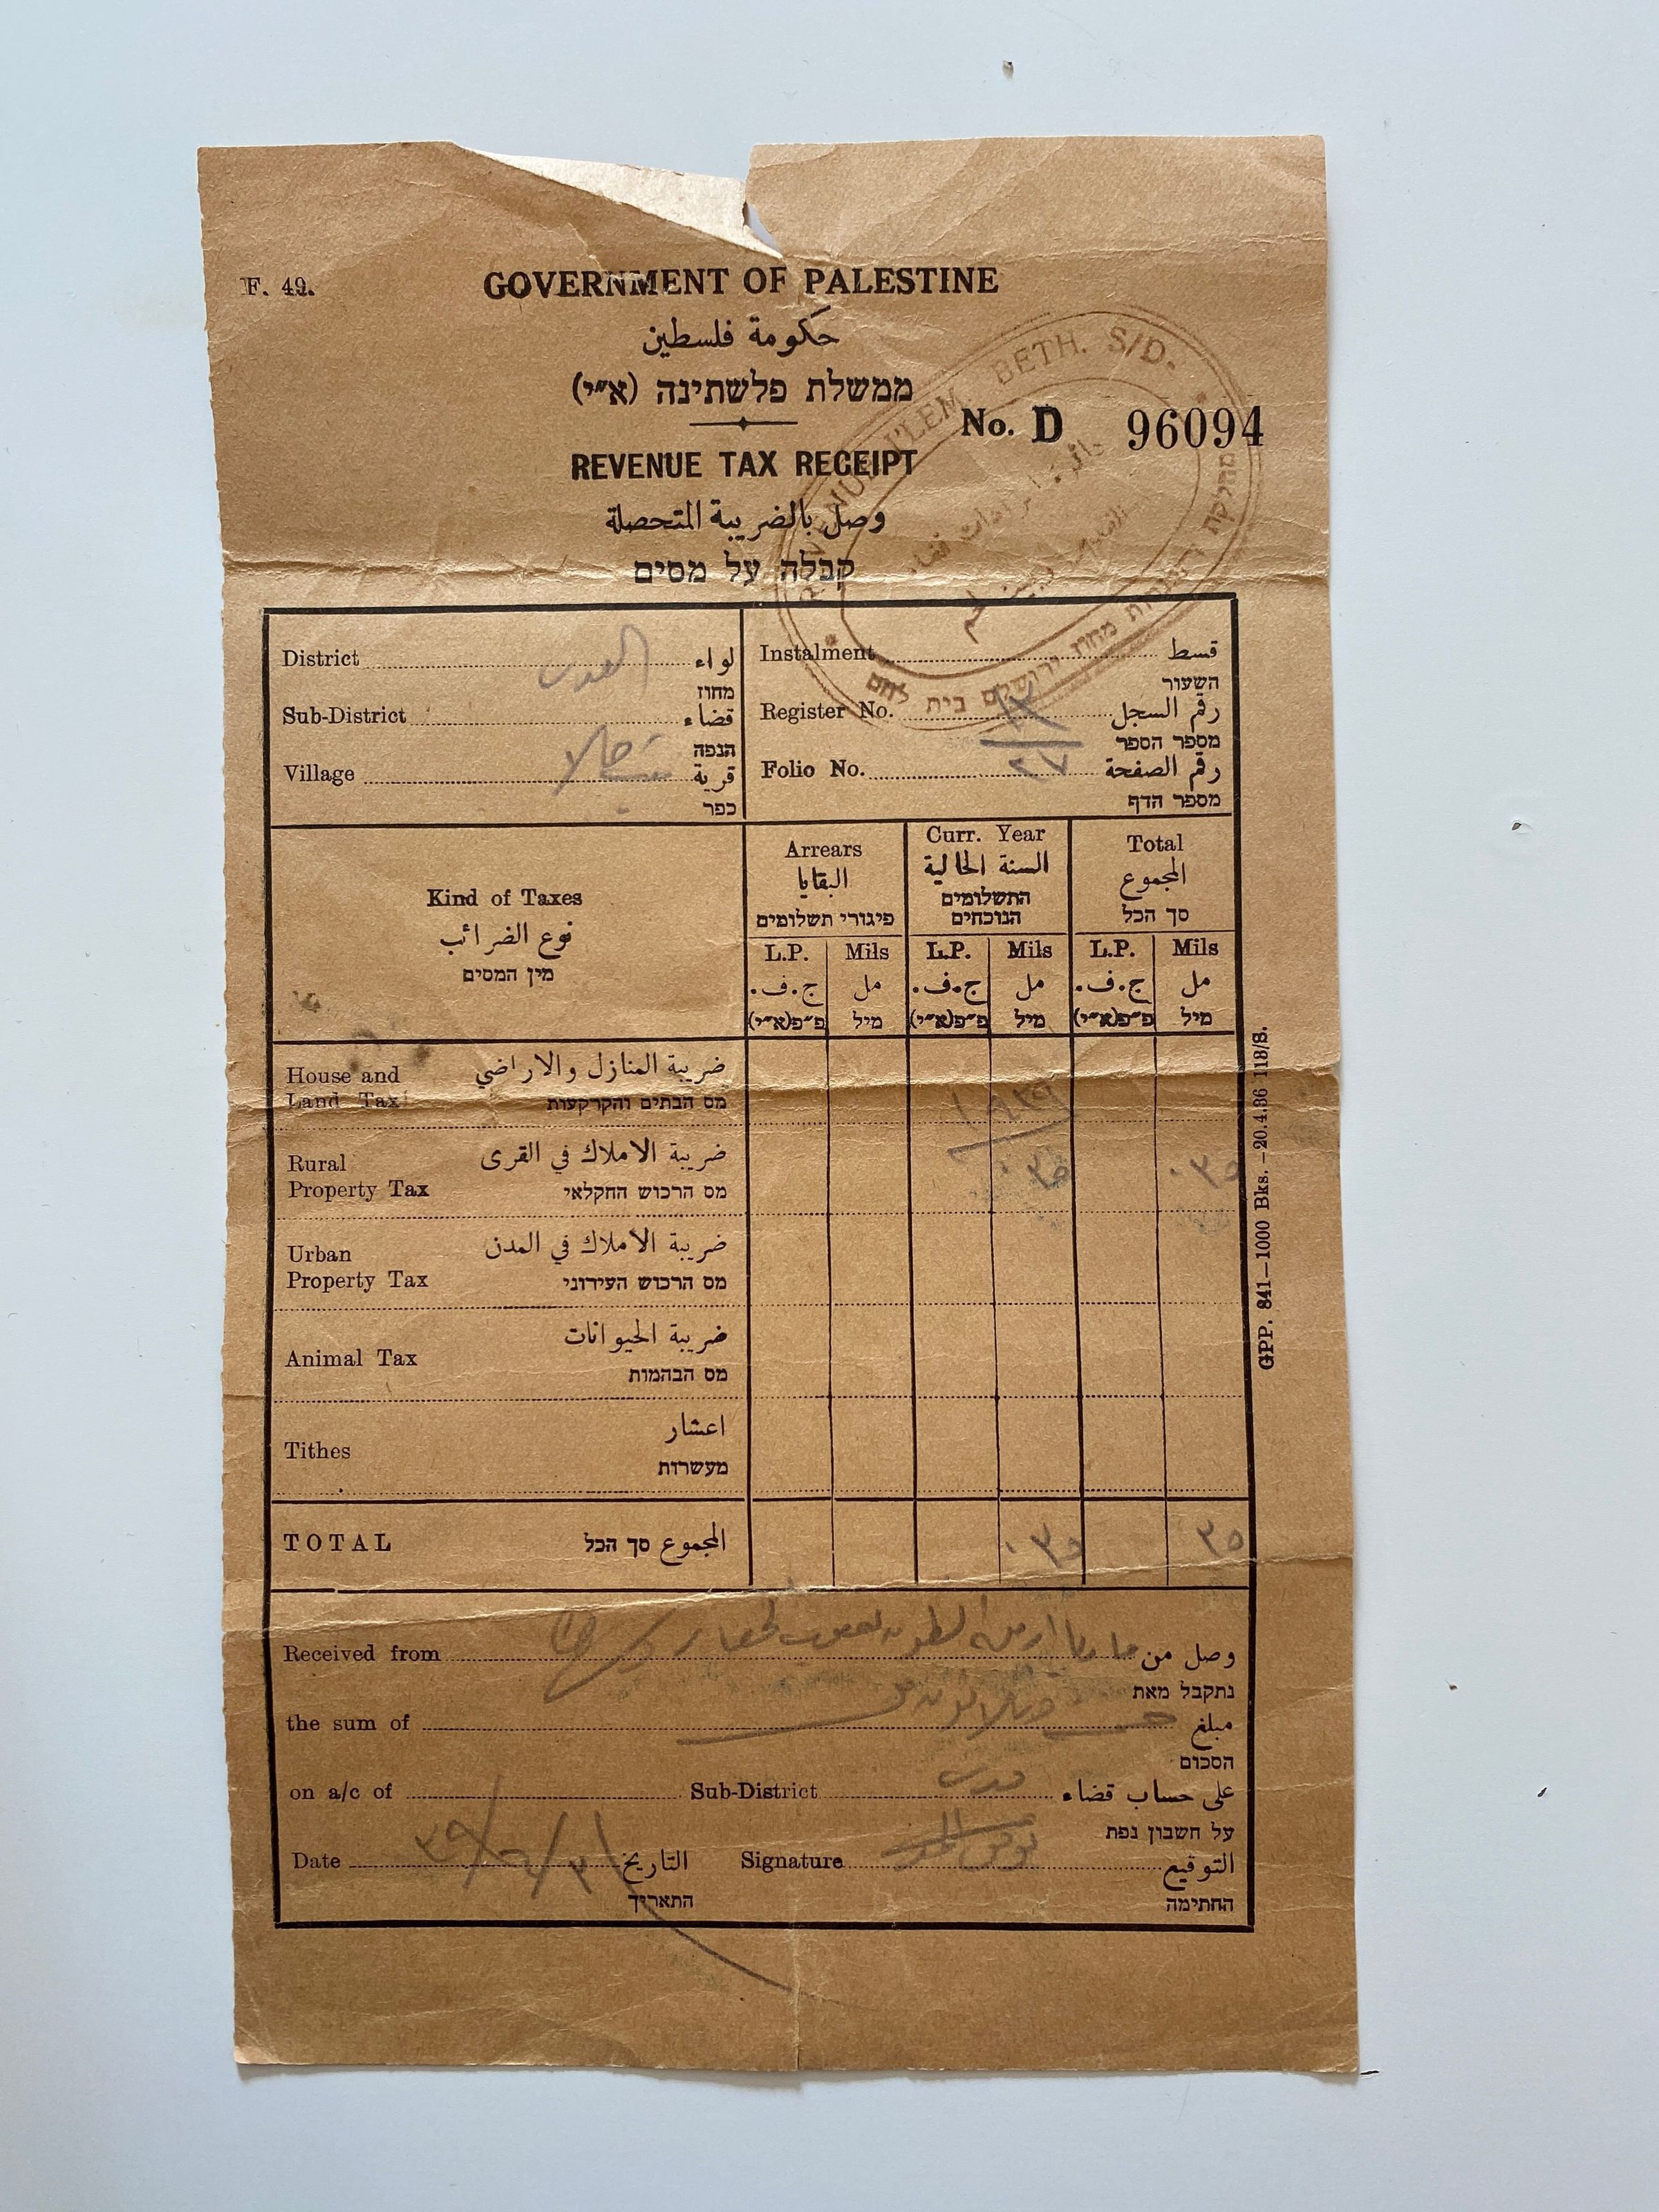 F. 49.
GOVERNMENT OF PALESTINE
حكومة فلسطين
ממשלת פלשתינה (א״י)
No. D 96094
REVENUE TAX RECEIPT
وصل بالضريبة المتحصلة
קבלה על מסים
BETH. S/D.
בית לחם
District القدس لواء
מחוז
Sub-District قضاء
הנפה
Village بيت جالا قرية
כפר
Instalment قسط
השעור
Register No. رقم السجل
מספר הספר
Folio No. ٢٧ رقم الصفحة
מספר הדף
Kind of Taxes
نوع الضرائب
מין המסים
Arrears
البقايا
פיגורי תשלומים
Curr. Year
السنة الحالية
התשלומים
הנוכחים
Total
المجموع
סך הכל
L.P. Mils L.P. Mils L.P. Mils
ج.ف. مل ج.ف. مل ج.ف. مل
פ״פ(א״י) מיל פ״פ(א״י) מיל פ״פ(א״י) מיל
House and ضريبة المنازل والاراضي
Land Tax מס הבתים והקרקעות
١٩٣٩
Rural ضريبة الاملاك في القرى
Property Tax מס הרכוש החקלאי
٠٣٥ ٠٣٥
Urban ضريبة الاملاك في المدن
Property Tax מס הרכוש העירוני
Animal Tax ضريبة الحيوانات
מס הבהמות
Tithes اعشار
מעשרות
TOTAL המجموع סך הכל ٠٣٥ ٣٥
Received from وصل من
נתקבל מאת
the sum of مبلغ
הסכום
on a/c of Sub-District قدس على حساب قضاء
על חשבון נפת
Date التاريخ Signature التوقيع
התאריך החתימה
GPP. 841—1000 Bks. —20.4.36 118/S.